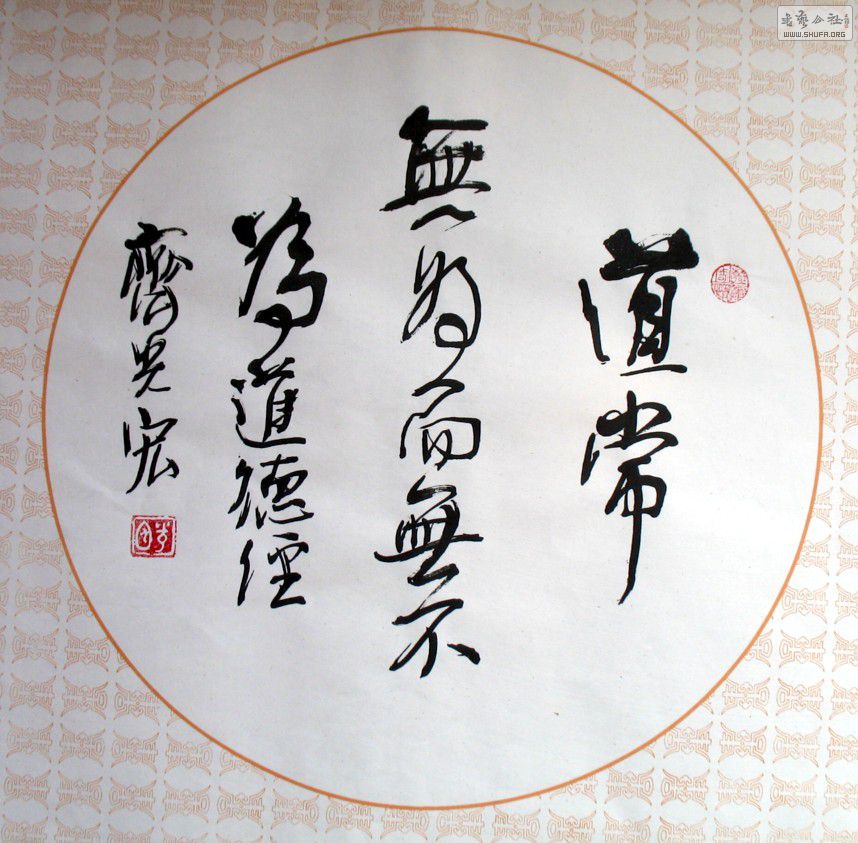 道常
無為而無不
為道德經
齊光宏
WWW.SHUFA.ORG